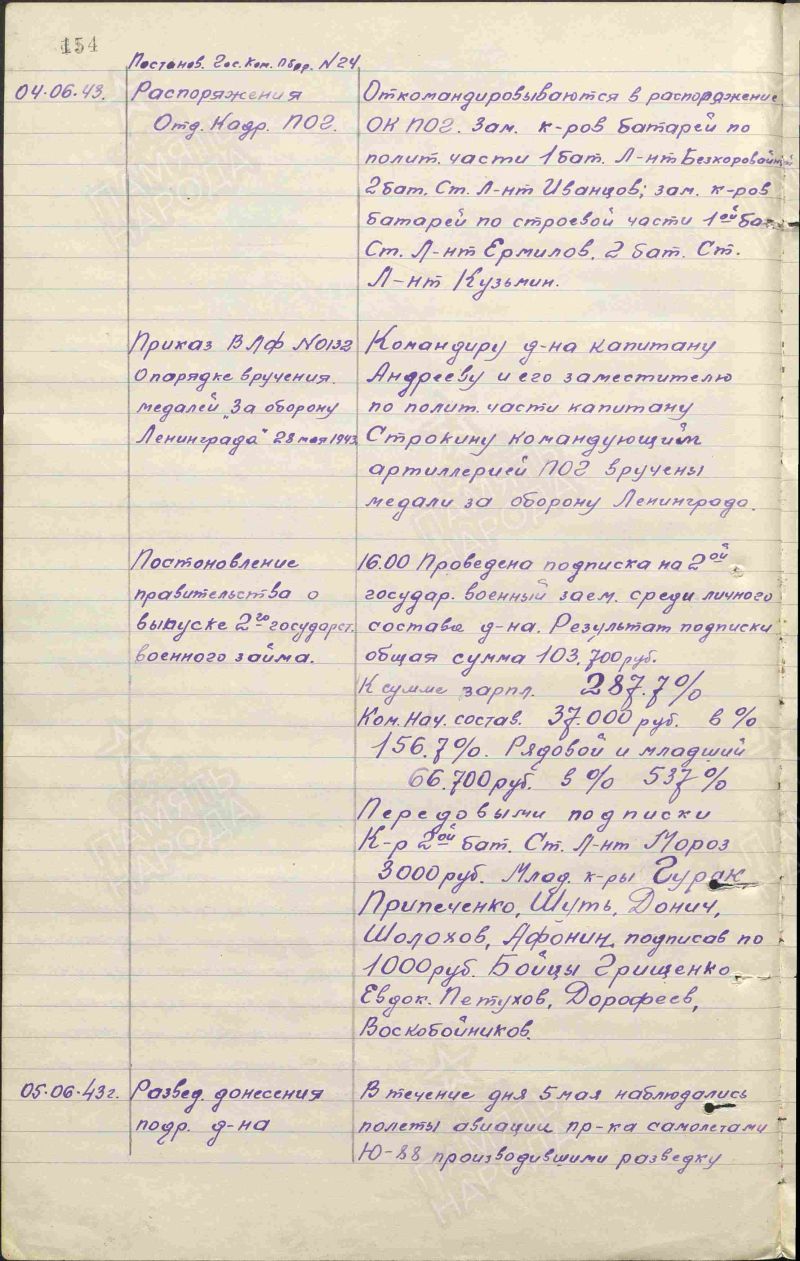 154
Постанов. Гос. Ком. Обор. N24
04.06.43. Распоряжения
Отд. Кадр. ПОГ.
Откомандировываются в распоряжение
ОК ПОГ. Зам. к-ров батарей по
полит. части 1 бат. Л-нт Безкоровайный
2 бат. Ст. Л-нт Иванцов; зам. к-ров
батарей по строевой части 1ой бат.
Ст. Л-нт Ермилов, 2 бат. Ст.
Л-нт Кузьмин.
Приказ ВЛФ N0132
О порядке вручения
медалей „За оборону
Ленинграда" 28 мая 1943
Командиру д-на капитану
Андрееву и его заместителю
по полит. части капитану
Строкину командующим
артиллерией ПОГ вручены
медали за оборону Ленинграда.
Постоновление
правительства о
выпуске 2го государст.
военного займа.
16.00 Проведена подписка на 2ой
государ. военный заем. среди личного
состава д-на. Результат подписки
общая сумма 103.700 руб.
К сумме зарпл. 287.7%
Ком. Нач. состав. 37.000 руб. в %
156.7%. Рядовой и младший
66.700 руб. в % 537%
Передовыми подписки
К-р 2ой бат. Ст. Л-нт Мороз
3000 руб. Млад. к-ры Гурак
Припеченко, Шуть, Донич,
Шолохов, Афонин, подписав по
1000 руб. Бойцы Грищенко
Евдок. Петухов, Дорофеев,
Воскобойников.
05.06.43г. Развед. донесения
подр. д-на
В течение дня 5 мая наблюдались
полеты авиации пр-ка самолетами
Ю-88 производившими разведку
ПАМЯТЬ
НАРОДА